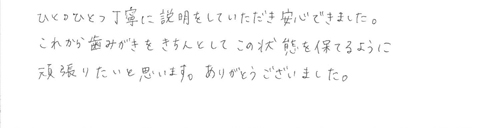 ひとつひとつ丁寧に説明をしていただき安心できました。
これから歯みがきをきちんとしてこの状態を保てるように
頑張りたいと思います。ありがとうございました。